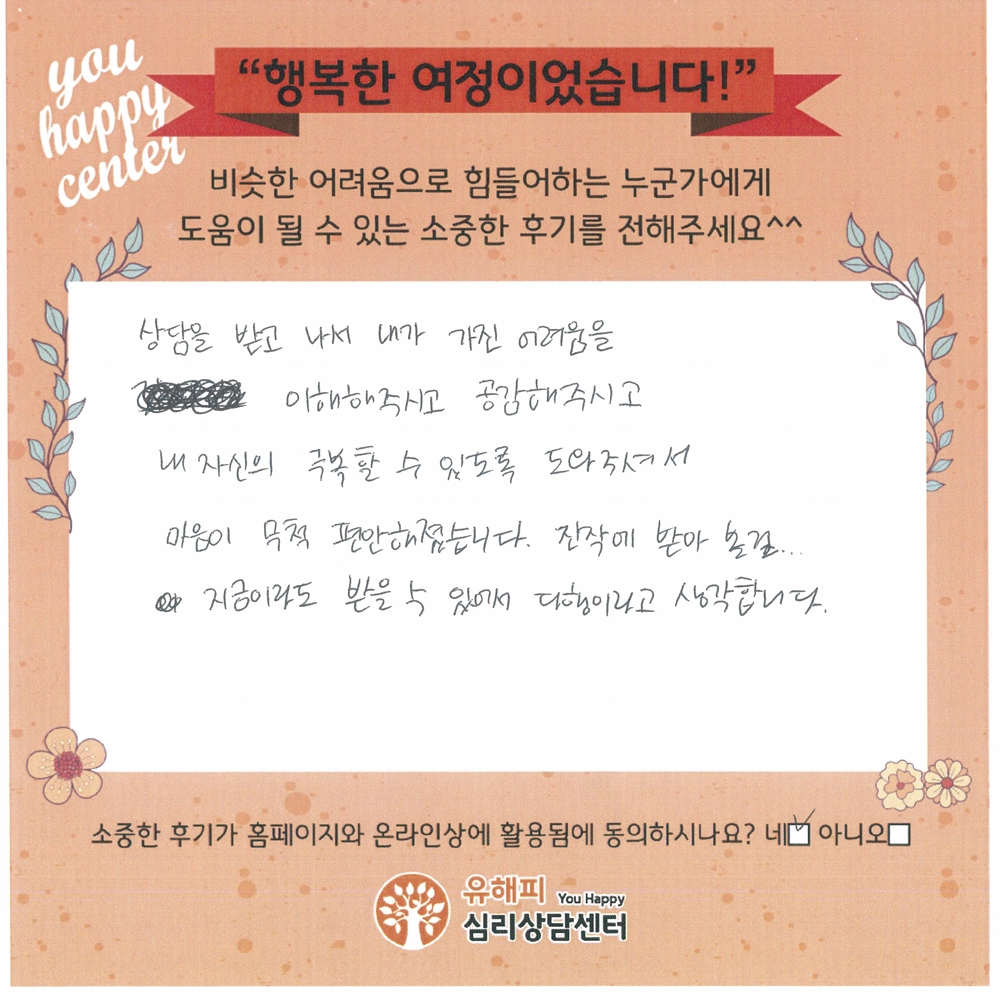 you
happy
center
“행복한 여정이었습니다!”
비슷한 어려움으로 힘들어하는 누군가에게
도움이 될 수 있는 소중한 후기를 전해주세요^^
상담을 받고 나서 내가 가진 어려움을
이해해주시고 공감해주시고
내 자신의 극복할 수 있도록 도와주셔서
마음이 무척 편안해졌습니다. 진작에 받아 볼걸...
지금이라도 받을 수 있어서 다행이라고 생각합니다.
소중한 후기가 홈페이지와 온라인상에 활용됨에 동의하시나요? 네 아니오
유해피 You Happy
심리상담센터